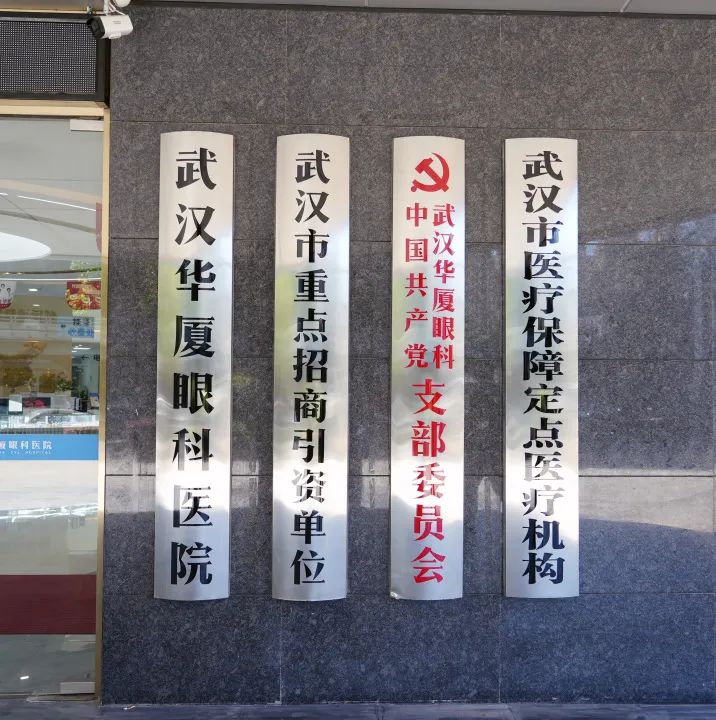 武汉华厦眼科医院
武汉市重点招商引资单位
中国共产党
武汉华厦眼科
支部委员会
武汉市医疗保障定点医疗机构
厦眼科医院